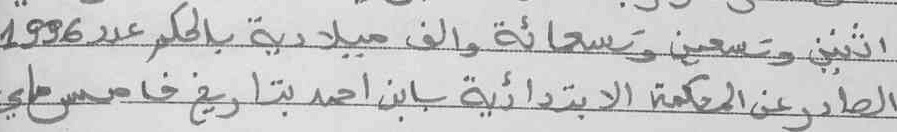 اثنين وتسعين وتسعمائة والف ميلادية بالحكم عدد 1996
الصادر عن المحكمة الابتدائية بابن احمد بتاريخ خامس ماي